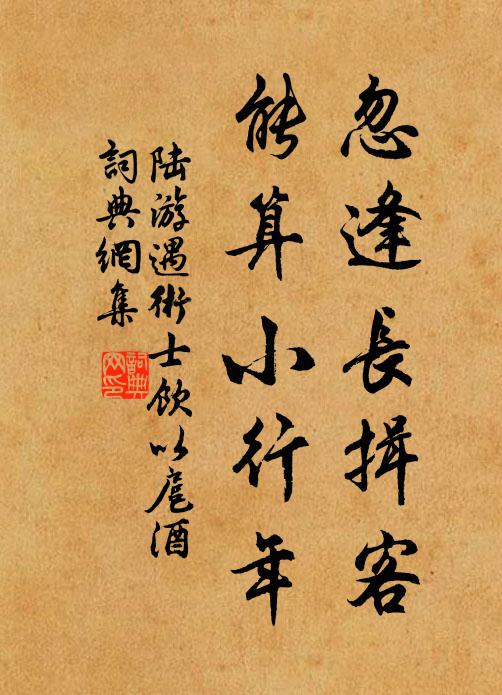 忽逢長揖客
能算小行年
陆游遇術士飲以扈酒
詞典網集
詞典網印